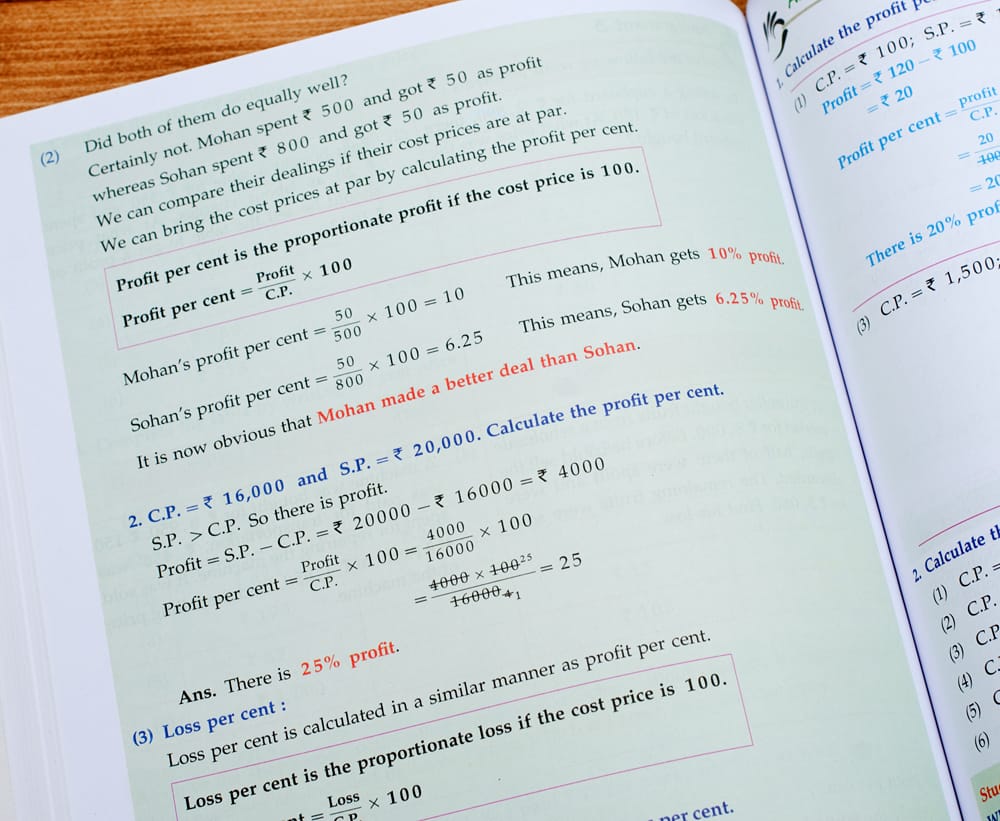 (2) Did both of them do equally well?
Certainly not. Mohan spent ₹ 500 and got ₹ 50 as profit
whereas Sohan spent ₹ 800 and got ₹ 50 as profit.
We can compare their dealings if their cost prices are at par.
We can bring the cost prices at par by calculating the profit per cent.
Profit per cent is the proportionate profit if the cost price is 100.
Profit per cent = Profit/C.P. × 100
Mohan's profit per cent = 50/500 × 100 = 10 This means, Mohan gets 10% profit.
Sohan's profit per cent = 50/800 × 100 = 6.25 This means, Sohan gets 6.25% profit.
It is now obvious that Mohan made a better deal than Sohan.
2. C.P. = ₹ 16,000 and S.P. = ₹ 20,000. Calculate the profit per cent.
S.P. > C.P. So there is profit.
Profit = S.P. − C.P. = ₹ 20000 − ₹ 16000 = ₹ 4000
Profit per cent = Profit/C.P. × 100 = 4000/16000 × 100
= 4000 × 100 25/16000 4 1 = 25
Ans. There is 25% profit.
(3) Loss per cent :
Loss per cent is calculated in a similar manner as profit per cent.
Loss per cent is the proportionate loss if the cost price is 100.
= Loss/C.P. × 100
per cent.
1. Calculate the profit
(1) C.P. = ₹ 100; S.P. = ₹
Profit = ₹ 120 − ₹ 100
= ₹ 20
Profit per cent = profit/C.P.
= 20/100
= 20
There is 20% prof
(3) C.P. = ₹ 1,500;
2. Calculate th
(1) C.P. =
(2) C.P.
(3) C.P
(4) C.
(5) C
(6)
Stu